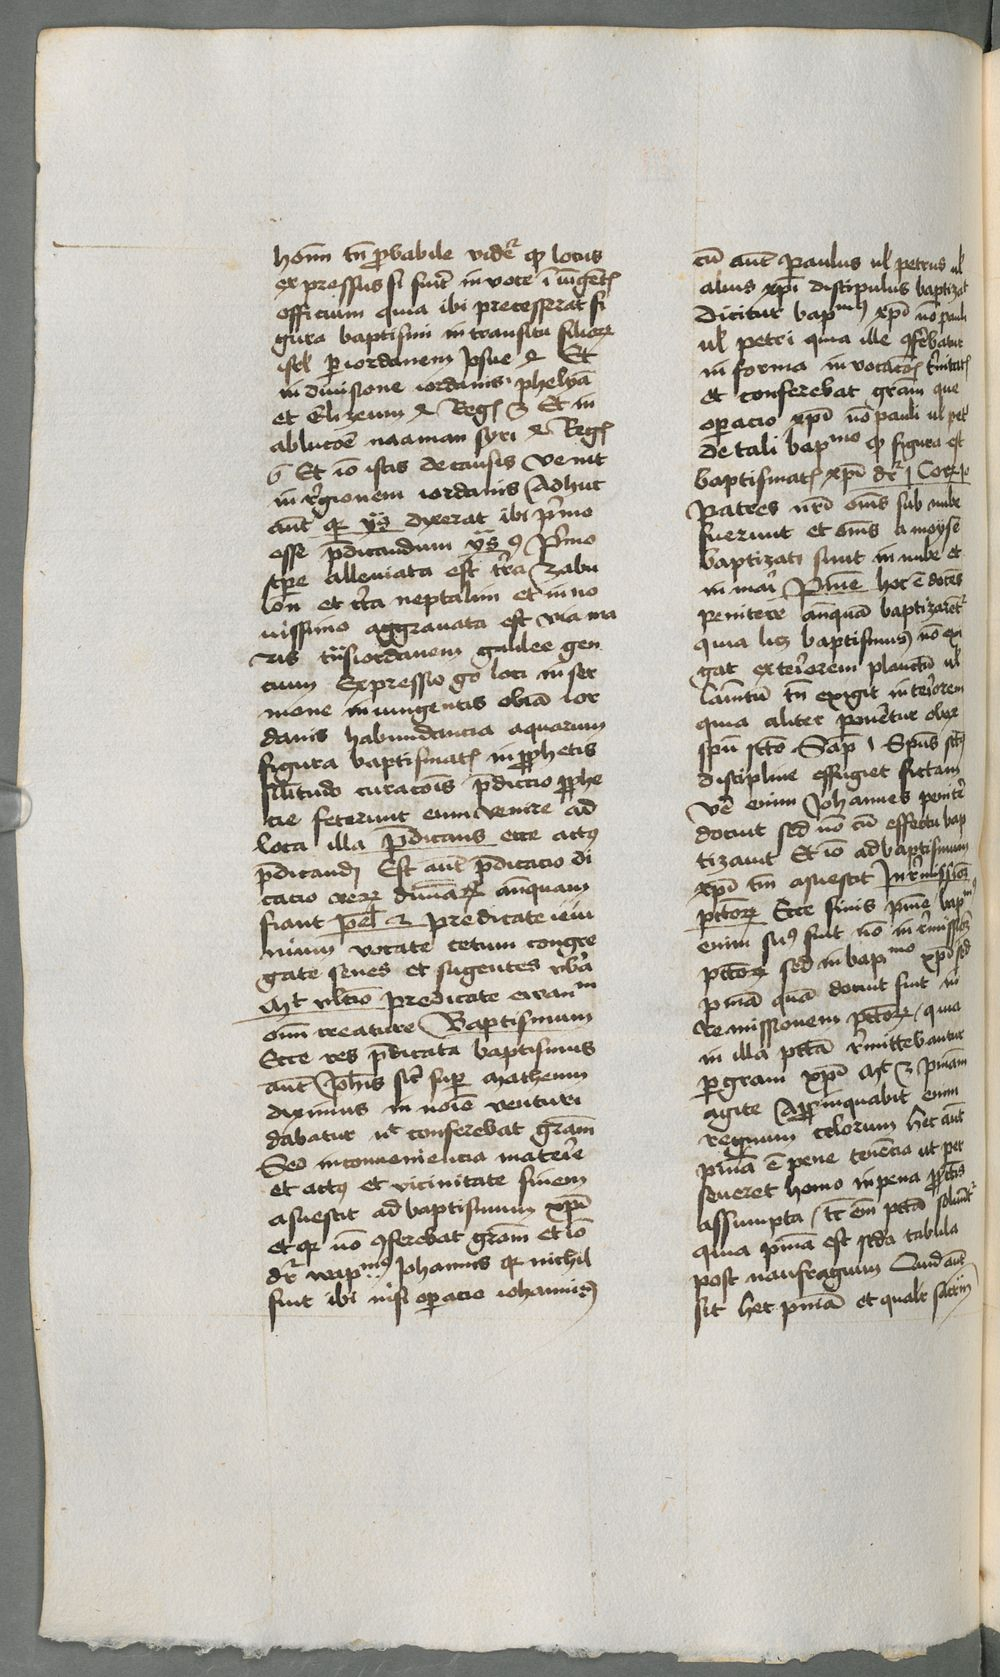 homī tn̄ probabile videt qͥ locus
expressus si fuit in voce īiūgēt
officium quia ibi precesserat fi
gura baptismi in transitu filioꝝ
isrl ꝑ iordanem Josue 4 Et
in divisione iordanis ꝑ helyā
et Elizeum 4 Reg 2 Et in
ablucōe naaman syri 4 Reg
Et iō istis de causis venit
in regionem iordanis Adhuc
aut̄ qꝛ ys dixerat ibi p̄mo
esse p̄dicandum ys 9 P̄mo
tpe alleuiata est tr̄a zabu
lon et tr̄a neptalim et in no
uissimo aggrauata est via ma
ris tnsiordanem galilee gen
cium Expressio gͦ loci in ser
mone iniungentis obiā Ior
danis habundancia aquarum
figura baptismat in ꝓphetis
silitudo curacōis p̄diccio ꝓphe
cie fecerunt eum venire ad
loca illa p̄dicans ecce actꝰ
p̄dicandi Est aut̄ p̄dicacio di
cacio reꝝ diuinaꝝ anquam
fiant Joel 2 Predicate ieiu
nium vocate cetum congre
gate senes et sugentes vbera
Mr vltīo predicate ewanᵐ
omni creature Baptismum
Ecce res p̄dicata baptismus
aut̄ Johīs sic̄ sup̄ matheum
diximus in noīe venturi
dabatur nͨ conferebat grām
Sed in conueniencia materie
et actꝰ et vicinitate finem
asuescit ad baptismum xp̄i
et qꝛ nō ꝯferebat grām et iō
dr̄ bapᵐᵘˢ Johannis qꝛ nichil
fuit ibi nisi operacio iohannis
cū aut̄ Paulus ul petrus ul
alius xp̄i discipulus baptizat
Dicitur bapᵐꝰ xp̄i nō pauli
ul petri quia ille ꝯferebatur
in forma in vocacōe t̄nitatͭ
et conferebat grām que
operacio xp̄i nō pauli ul pet
De tali bapᵐᵒ qͥ figura est
baptismat xp̄i dr̄ 1 Cor 10
Patres nr̄i om̄s sub nube
fuerunt et om̄s a moyse
baptizati sunt in nube et
in mari Pn̄ie hoc ē docēs
penitere anquā baptizarēt
quia licꝫ baptismus nō exi
gat exteriorem planctū ul
lamētū tn̄ exigit interiorem
quia aliter poneretur obex
spū scto Sap 1 Spūs scs
discipline effugiet fictam
Vn̄ enim Johannes penitēc
docuit sed nō cū effectu bap
tizauit Et iō ad baptismum
xp̄i tm̄ asuescit In remissionē
pctoꝝ Ecce finis pn̄ie bapᵐꝰ
enim suꝰ fuit nō in remissionē
pctoꝝ sed in bapᵐᵒ xp̄i sed
pn̄iā quā docuit fuit in
remissionem pctoꝝ quia
in illa pctā remittebantur
ꝑ gram xp̄i Mt 3 Pn̄iam
agite Appropinquabit enim
regnum celorum Hec aut̄
pn̄iā ē pene tenēcia ut per
seueret homo in pena ꝓ pctīs
assumpta tc̄ em̄ pctā soluūtͬ
quia pn̄iā est scda tabula
post naufragium Quid aut̄
sit hec pn̄iā et qualr̄